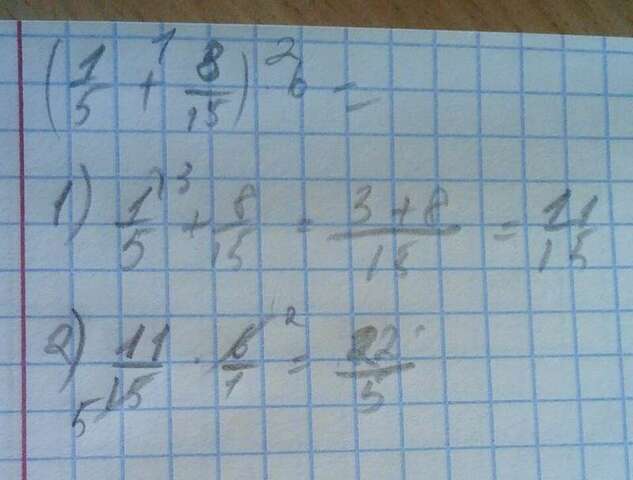 (1/5 +¹ 8/15) ·² 6 =
1) 1/5 ⁾³ + 8/15 = 3+8/15 = 11/15
2) 11/15 5 · 6/1 ² = 22/5